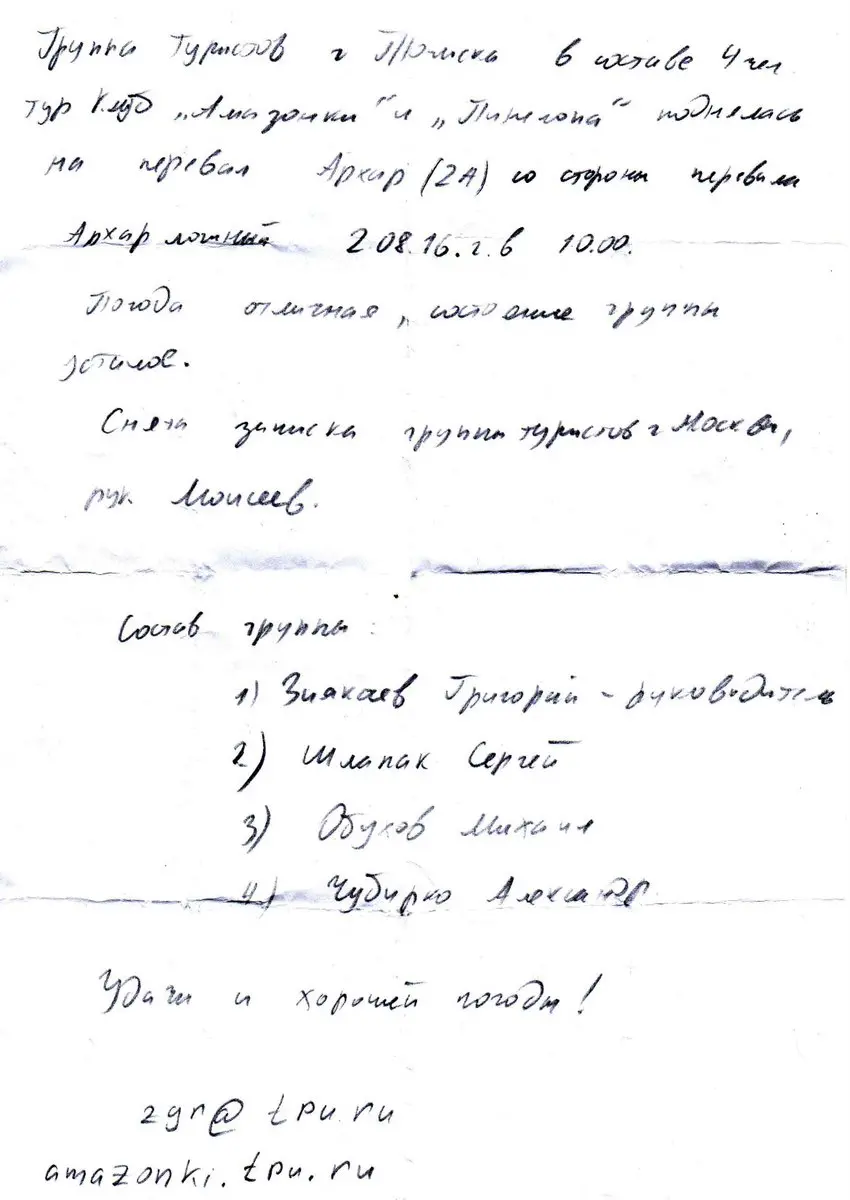 Группа туристов г Томска в составе 4 чел
тур клуб „Амазонки" и „Пинегопа" поднялась
на перевал Архар (2А) со стороны перевала
Архар ложный 2.08.16.г. в 10.00.
Погода отличная, состояние группы
Снята записка группы туристов г Москвы,
рук Моисеев.
Состав группы:
1) Зиякаев Григорий - руководитель
2) Шлапак Сергей
3) Обухов Михаил
4) Чубирко Александр
Удачи и хорошей погоды!
zgr@tpu.ru
amazonki.tpu.ru